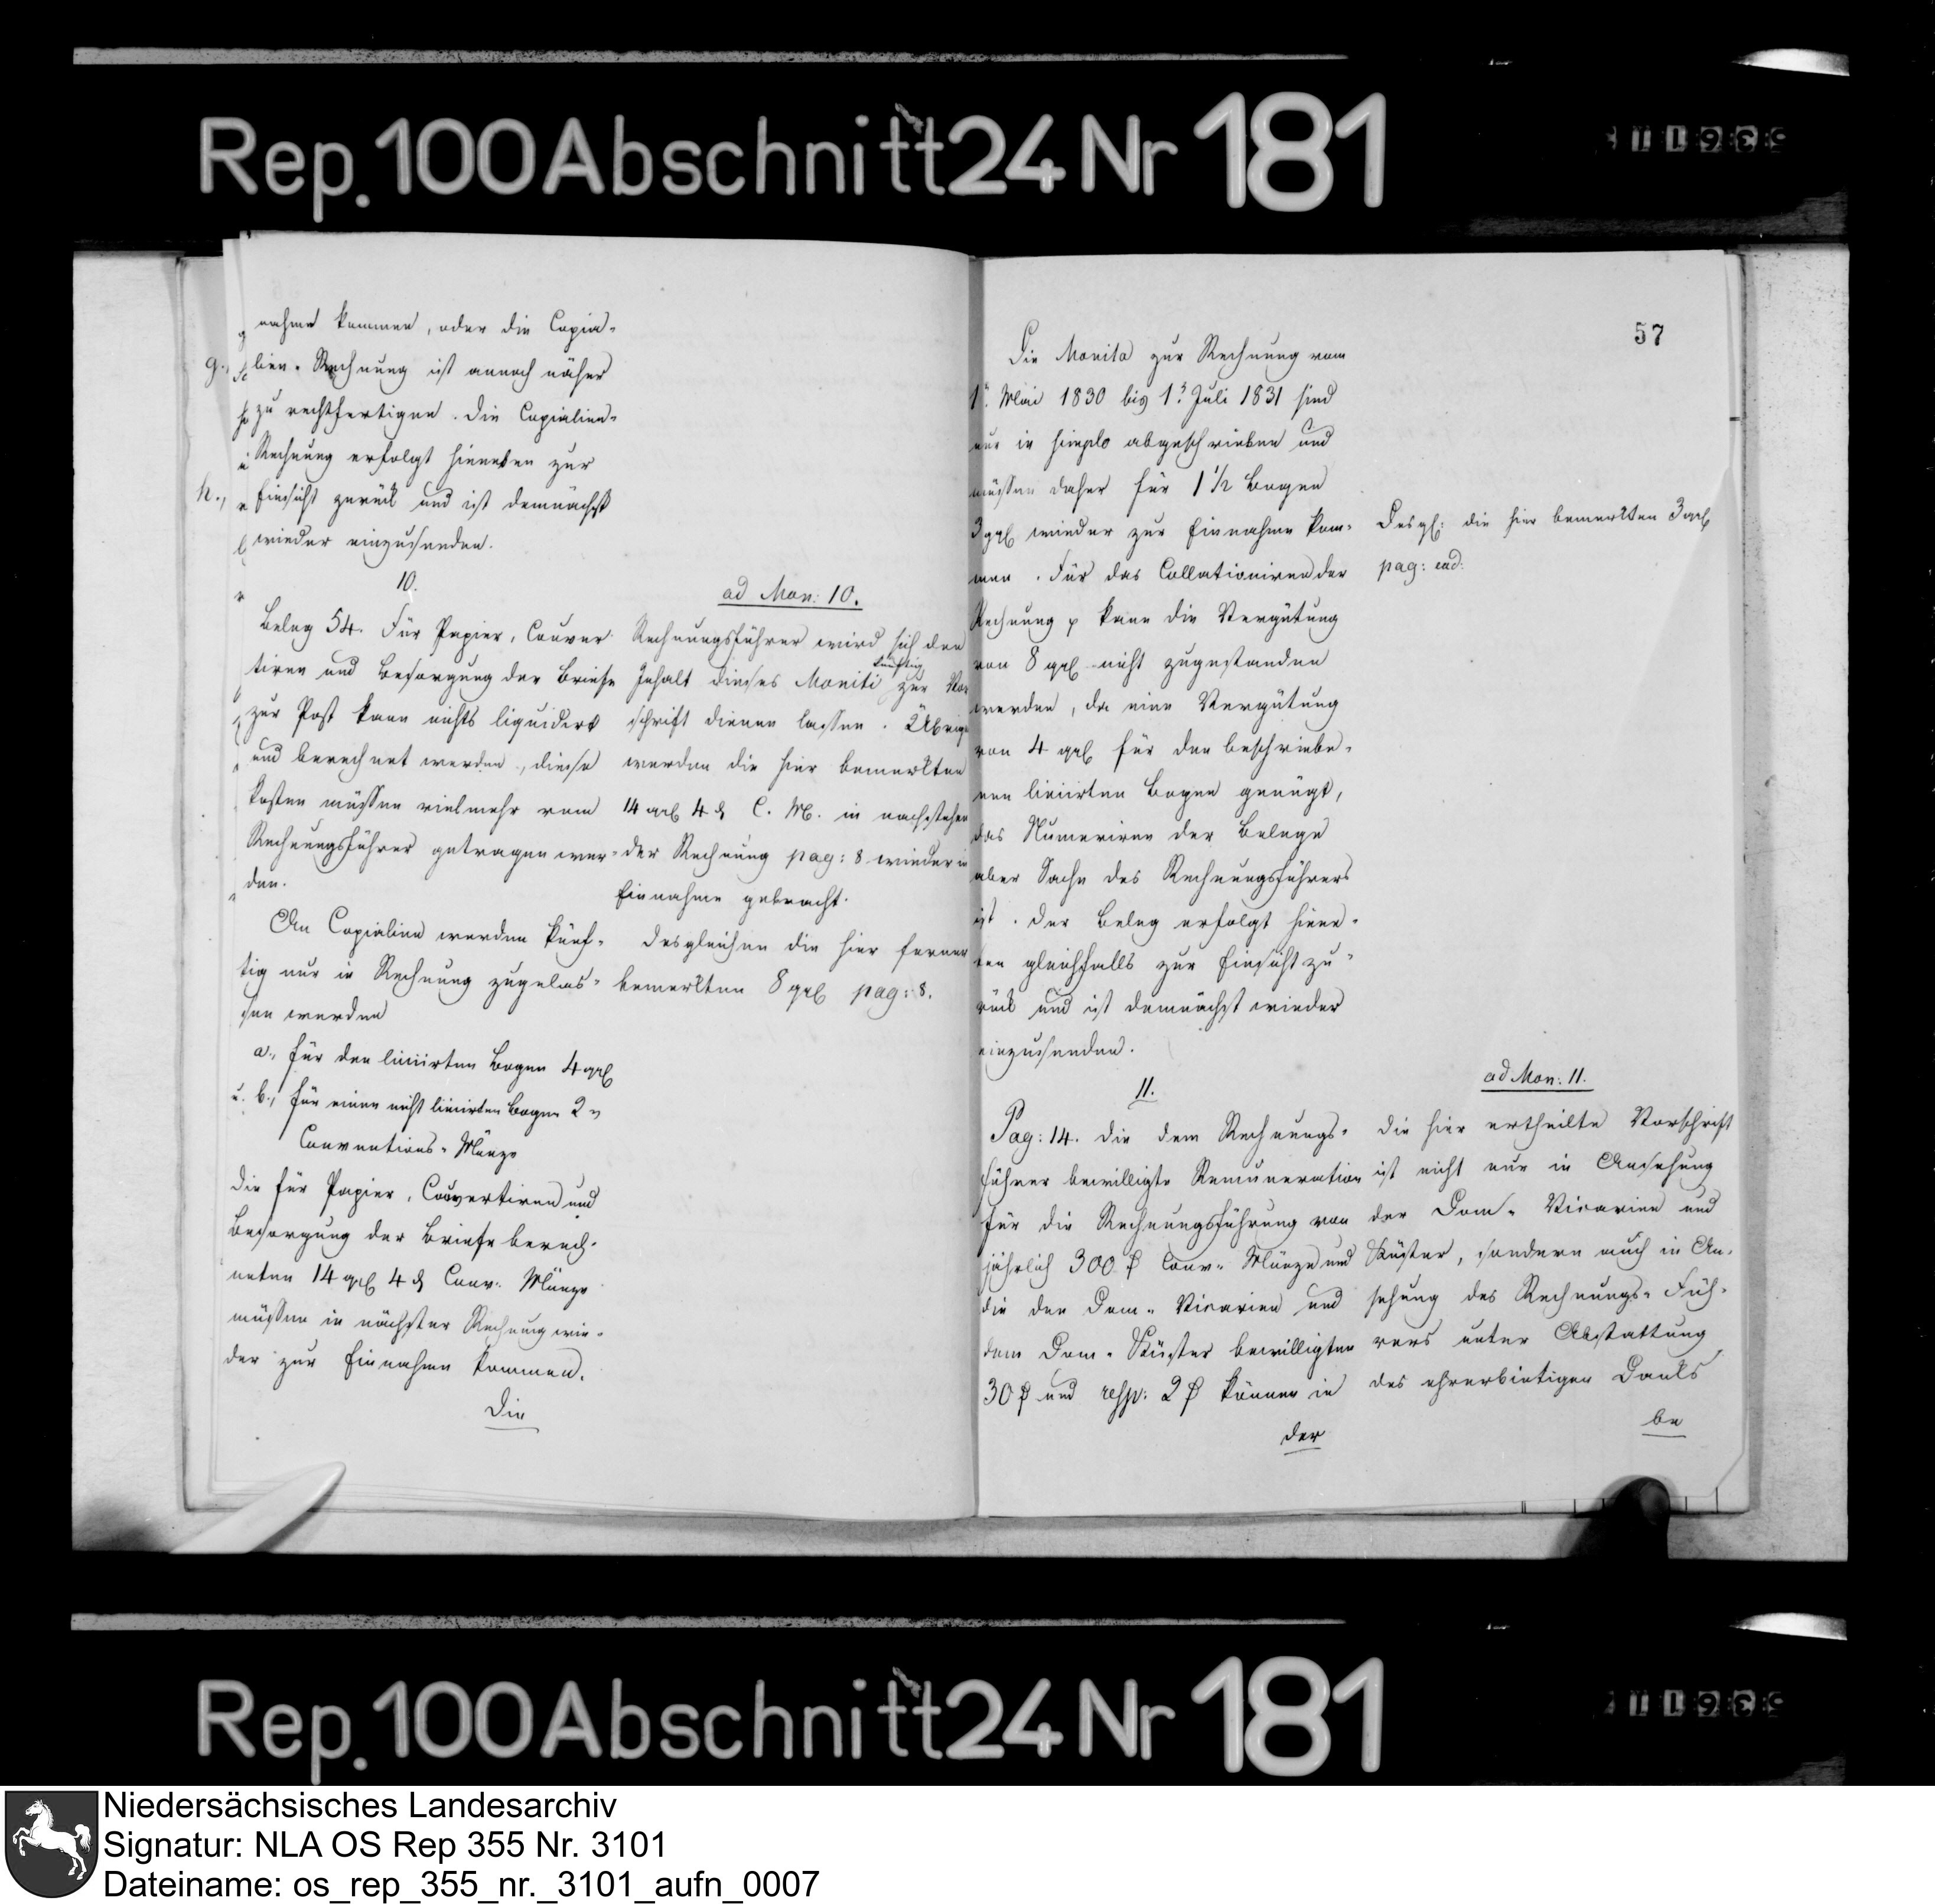 Rep. 100 Abschnitt 24 Nr 181
nahme kommen, oder die Copia-
g.,
lien-Rechnung ist annoch näher
zu rechtfertigen. Die Copialien-
Rechnung erfolgt hieneben zur
h.,
Einsicht zurück und ist demnächst
wieder einzusenden.
10.
Beleg 54. Für Papier, Couver-
tiren und Besorgung der Briefe
zur Post kann nichts liquidirt
und berechnet werden, diese
Kosten müssen vielmehr vom
Rechnungsführer getragen wer-
den.
An Copialien werden künf-
tig nur in Rechnung zugelas-
sen werden
a., für den liniirten Bogen 4 ggl
u. b., für einen nicht liniirten Bogen 2 "
Conventions-Münze
Die für Papier, Couvertiren und
Besorgung der Briefe berech-
neten 14 ggl 4 d Conv: Münze
müssen in nächster Rechnung wie-
der zur Einnahme kommen.
Die
ad Mon: 10.
Rechnungsführer wird sich den
künftig
Inhalt dieses Moniti zur Vor
schrift dienen lassen. Übrig
werden die hier bemerkten
14 ggl 4 d C. M. in nachstehen
der Rechnung pag: 8 wieder in
Einnahme gebracht.
Desgleichen die hier ferner
bemerkten 8 ggl pag: 8.
57
Die Monita zur Rechnung vom
1. Mai 1830 bis 1. Juli 1831 sind
nur in simplo abgeschrieben und
müssen daher für 1 1/2 Bogen
3 ggl wieder zur Einnahme kom-
men. Für das Collationiren der
Rechnung p kann die Vergütung
von 8 ggl nicht zugestanden
werden, da eine Vergütung
von 4 ggl für den beschriebe-
nen liniirten Bogen genügt,
das Numeriren der Belege
aber Sache des Rechnungsführers
ist. Der Beleg erfolgt hiene-
ben gleichfalls zur Einsicht zu-
rück und ist demnächst wieder
einzusenden.
11.
Pag: 14. Die dem Rechnungs-
führer bewilligte Remuneration
für die Rechnungsführung von
jährlich 300 ₰ Conv: Münze und
die den Dom-Vicarien und
dem Dom-Küster bewilligten
30 ₰ und resp: 2 ₰ können in
der
Desgl: die hier bemerkten 3 ggl
pag: ead:
ad Mon: 11.
Die hier ertheilte Vorschrift
ist nicht nur in Ansehung
der Dom-Vicarien und
Küster, sondern auch in An-
sehung des Rechnungs-Füh-
rers unter Abstattung
des ehrerbietigen Danks
be
Rep. 100 Abschnitt 24 Nr 181
Niedersächsisches Landesarchiv
Signatur: NLA OS Rep 355 Nr. 3101
Dateiname: os_rep_355_nr._3101_aufn_0007